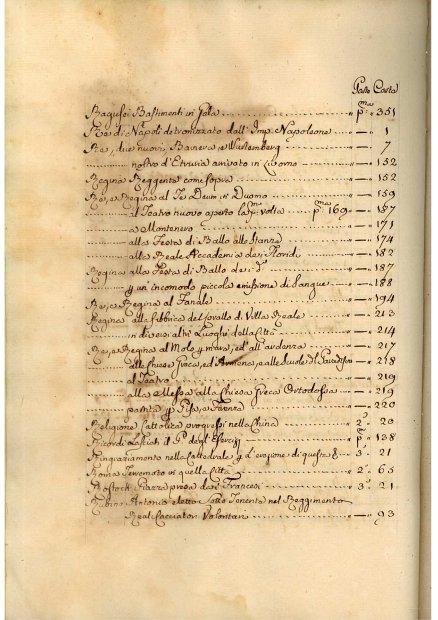 Parte Carta
Ragusei Bastimenti in Gala p.ma 351
Re di Napoli detronizzato dall' Imp. Napoleone 1
Re, due nuovi, Baviera, e Wirtemberg 7
nostro d'Etruria arrivato in Livorno 152
Regina Reggente come sopra 152
Re, e Regina al Te Deum in Duomo 159
al Teatro nuovo aperto la p.ma volta p.ma 169 157
a Montenero 171
alla Festa di Ballo alle Stanze 174
alla Reale Accademia dei Floridi 182
Regina alla Festa di Ballo dei d.i 187
p un' incomodo piccola emissione di Sangue 188
Re, e Regina al Fanale 194
Regina alla fabbrica del Corallo di Villa Reale 213
in diversi altri Luoghi della Città 214
Re, e Regina al Molo p mare, ed all' ardenza 217
alle Chiese Greca, ed Armena, e alle Scuole 218
al Teatro 219
alla Messa alla Chiesa Greca Ortodossa 219
partita p Pisa, e Firenze 220
Religione Cattolica progressi nella China 2.a 20
Ricordi Lasciati il G.e degl' Eserciti p.ma 138
Ringraziamento nella Cattedrale p l'erezione di questa 3.a 21
Roma Terremoto in quella Città 2.a 65
Rostock Piazza presa dai Francesi 3.a 21
Rubino Antonio eletto Sotto Tenente nel Reggimento
Real Cacciatori Volontari 93